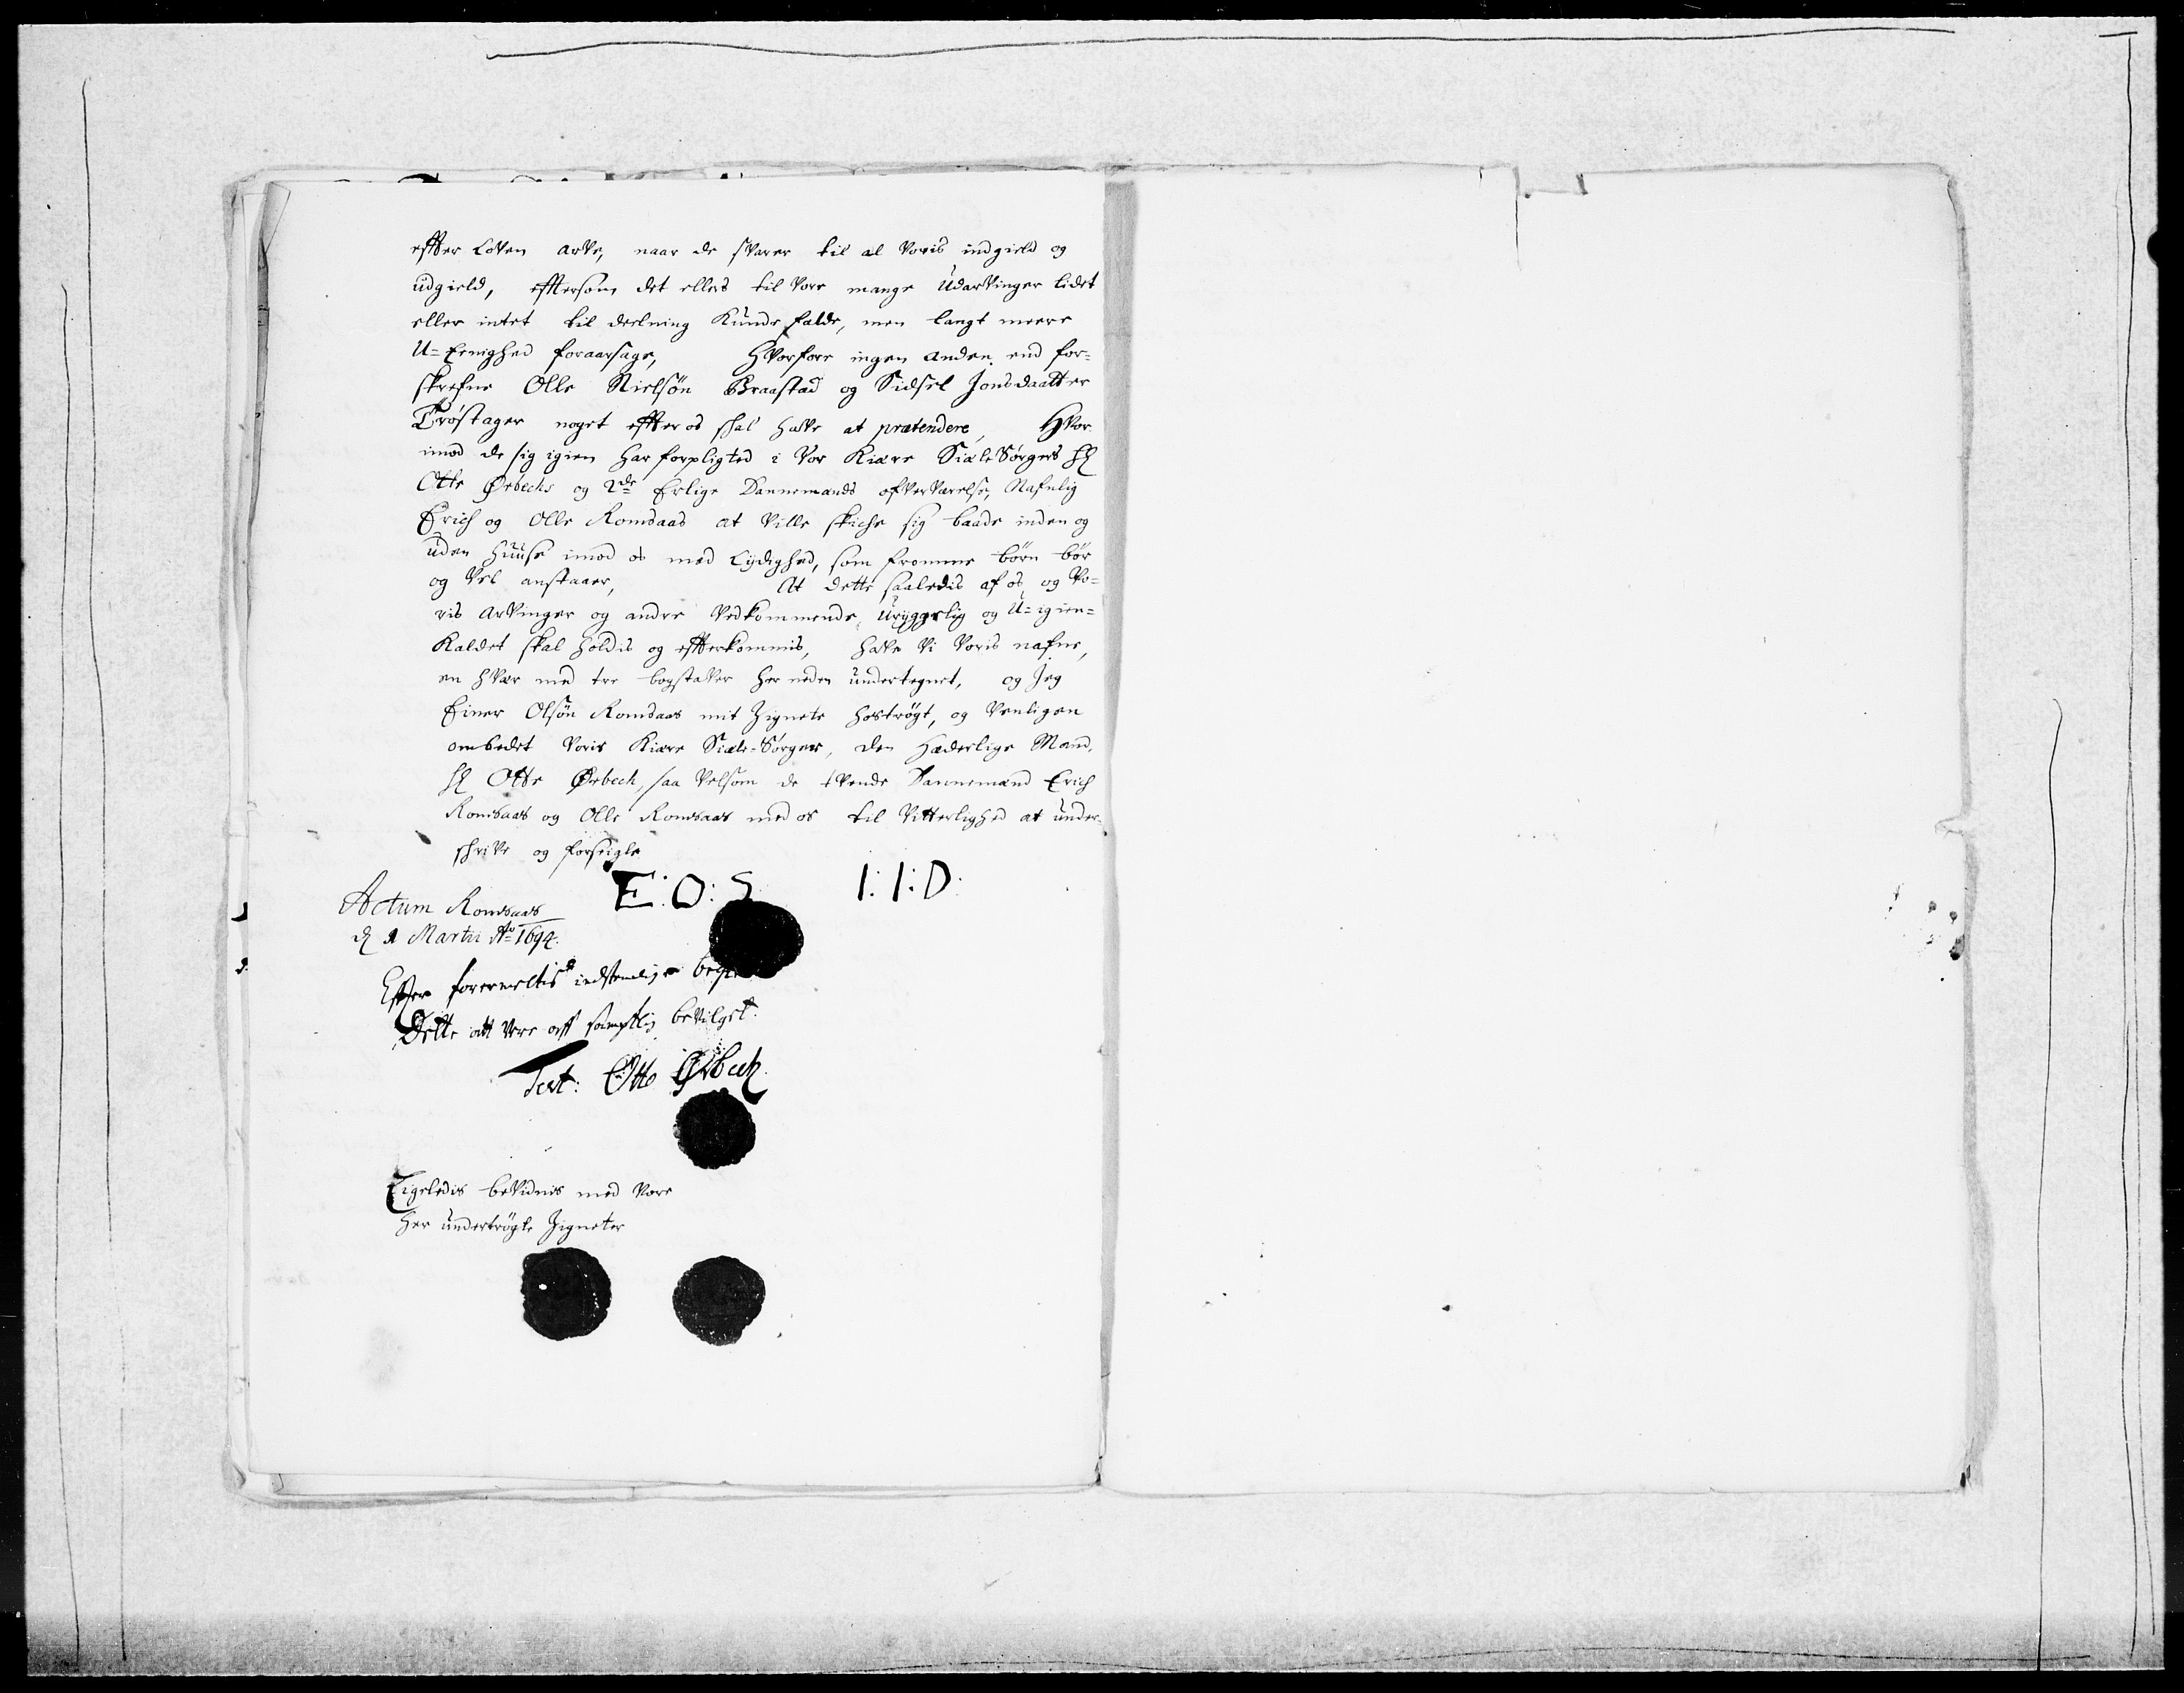 effter Loven arve, naar de svarer til al voris indgield og
udgield, effttersom det ellers til vore mange Udarvinger lidet
eller intet til deelning Kunde falde, men langt meere
U-Eenighed foraarsage, Hvorfore ingen anden end for-
skrefne Olle Nielsøn Braastad og Sidsel Jonsdaatter
Trøstager noget effter os skal have at prætendere, Hvor
imod de sig igien har forpligted i Vor Kiære SiæleSørgers Hr
Otte Ørbechs og 2de Erlige Dannemænds ofververelse, Nafnlig
Erich og Olle Romsaas at ville skiche sig baade inden og
uden Huuse imod os med Lydighed, som fromme børn bør
og vel anstaaer, At dette saaledis af os og Vo-
ris Arvinger og andre vedkommende, Uryggelig og U-igien-
Kaldet skal holdis og effterkommis, have vi Voris nafne,
en hver med tre bogstaver her neden undertegnet, og Jeg
Einer Olsøn Romsaas mit Zignete hostrøgt, og venligen
ombedet Voris Kiære Siæle-Sørger, den Hæderlige Mand,
Hr Otte Ørbech, saa velsom de tvende Dannemænd Erich
Romsaas og Olle Romsaas med os til Vitterlighed at under-
schrive og forseigle
E: O: S I: I: D:
Actum Romsaas
d 1 Martii Ao 1694.
Effter foremeltis indstendige
Dette att vere aff samptlig bevilget.
Test: Otto Ørbech
Ligeledis bevidnis med Vore
her undertrøgte Zigneter